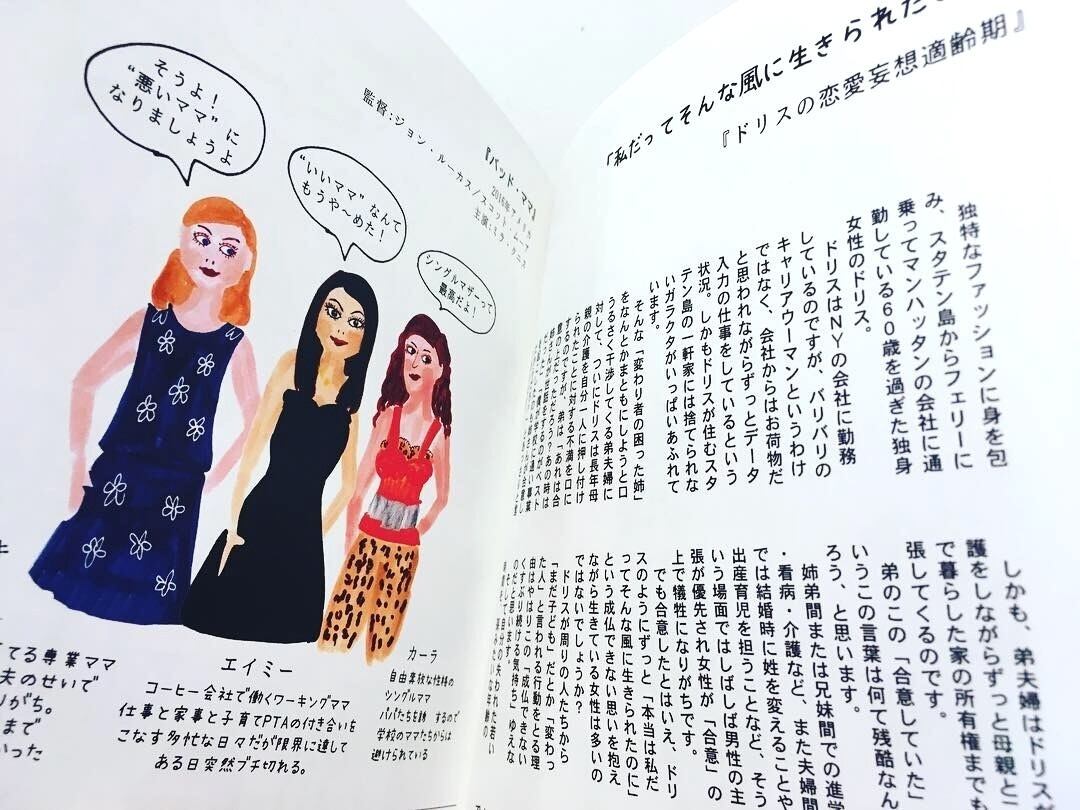 そうよ！
“悪いママ”に
なりましょうよ
“いいママ”なんて
もうや〜めた！
シングルマザーって
最高だよ！
『バッド・ママ』
監督：ジョン・ルーカス/スコット・ムーア
主演：ミラ・クニス
てる専業ママ
夫のせいで
りがち。
まで
いった
エイミー
コーヒー会社で働くワーキングママ
仕事と家事と子育てPTAの付き合いを
こなす多忙な日々だが限界に達して
ある日突然ブチ切れる。
カーラ
自由奔放な性格の
シングルママ
パパたちを
するので
学校のママたちからは
避けられている
「私だってそんな風に生きられた
『ドリスの恋愛妄想適齢期』
独特なファッションに身を包
み、スタテン島からフェリーに
乗ってマンハッタンの会社に通
勤している60歳を過ぎた独身
女性のドリス。
ドリスはNYの会社に勤務
しているのですが、バリバリの
キャリアウーマンというわけ
ではなく、会社からはお荷物だ
と思われながらずっとデータ
入力の仕事をしているという
状況。しかもドリスが住むスタ
テン島の一軒家には捨てられな
いガラクタがいっぱいあふれて
います。
そんな「変わり者の困った姉」
をなんとかまともにしようと口
うるさく干渉してくる弟夫婦に
対して、ついにドリスは長年母
親の介護を自分一人に押し付け
られたことに対する不満を口に
するのですが、弟は「あれは合
意の上だっただろう？あの時は
しかも、弟夫婦はドリス
護をしながらずっと母親と
で暮らした家の所有権までも
張してくるのです。
弟のこの「合意していた」
いうこの言葉は何て残酷なん
ろう、と思います。
姉弟間または兄妹間での進学
・看病・介護など、また夫婦間
では結婚時に姓を変えることや
出産育児を担うことなど、そう
いう場面ではしばしば男性の主
張が優先され女性が「合意」の
上で犠牲になりがちです。
でも合意したとはいえ、ドリ
スのようにずっと「本当は私だ
ってそんな風に生きられたのに」
という成仏できない思いを抱え
ながら生きている女性は多いの
ではないでしょうか？
ドリスが周りの人たちから
「まだ子どもだ」とか「変わっ
た人」と言われる行動をとる理
由はやはりこの「成仏できない
くすぶり続ける気持ち」ゆえな
のだと思います。